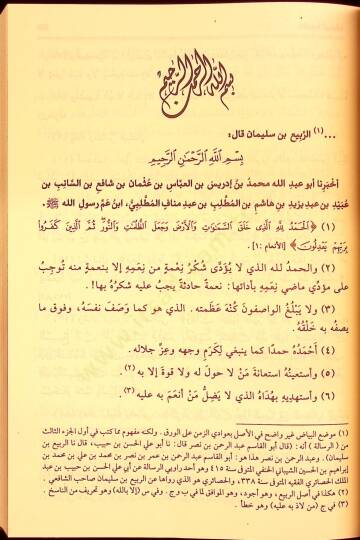 بسم الله الرحمن الرحيم
...(١) الرَّبيع بن سليمان قال:
بِسْمِ اللَّهِ الرَّحْمَٰنِ الرَّحِيمِ
أخبرنا أبو عبد الله محمدُ بنُ إدريسَ بن العبّاس بن عُثمان بن شافع بن السَّائِب بن
عُبَيْد بن عبد يزيدَ بن هاشم بن المُطَّلِب بن عبد منافٍ المُطَّلِبيُّ، ابنُ عمِّ رسولِ الله ﷺ.
(١) ﴿الْحَمْدُ لِلَّهِ الَّذِي خَلَقَ السَّمَٰوَٰتِ وَالْأَرْضَ وَجَعَلَ الظُّلُمَٰتِ وَالنُّورَ ثُمَّ الَّذِينَ كَفَرُوا
بِرَبِّهِمْ يَعْدِلُونَ﴾ [الأنعام: ١].
(٢) والحمدُ لله الذي لا يُؤَدَّى شُكْرُ نِعْمةٍ من نِعَمِهِ إلا بنعمةٍ منه تُوجِبُ
على مؤدِّي ماضي نِعَمِهِ بأدائها: نعمةً حادثةً يجبُ عليه شكرُهُ بها!.
(٣) ولا يَبْلُغُ الواصفونَ كُنْهَ عظَمته. الذي هو كما وَصَفَ نفسَهُ، وفوق ما
يصفُه به خَلْقُهُ.
(٤) أَحْمَدُهُ حمدًا كما ينبغي لِكَرَمِ وجههِ وعِزِّ جلاله.
(٥) وأستعينُهُ استعانةَ مَنْ لا حولَ له ولا قوةَ إلا به(٢).
(٦) وأستهديهِ بهُدَاهُ الذي لا يَضِلُّ مَنْ أَنعَمَ به عليه(٣).
(١) موضع البياض غير واضح في الأصل بعوادي الزمن على الورق. ولكنه مفهوم مما كتب في أول الجزء الثالث
من (الرسالة) أنه: (قال أبو القاسم عبد الرحمن بن نصر قال: نا أبو علي الحسن بن حبيب، قال نا الربيع بن
سليمان). وعبد الرحمن بن نصر هذا هو: أبو القاسم عبد الرحمن بن عمر بن نصر بن محمد بن علي بن محمد بن
إبراهيم بن الحسين الشيباني الحنفي المتوفى سنة ٤١٥ وهو أحد راويي الرسالة عن أبي علي الحسن بن حبيب بن عبد
الملك الحصائري الفقيه المتوفى سنة ٣٣٨، والحصائري هو الذي رواها عن الربيع بن سليمان صاحب الشافعي.
(٢) هكذا في أصل الربيع، وهو أجود، وهو الموافق لما في ب و ج. وفي س (إلا بالله) وهو تحريف من الناسخ.
(٣) في ج (من لاذ به عليه) وهو خطأ.